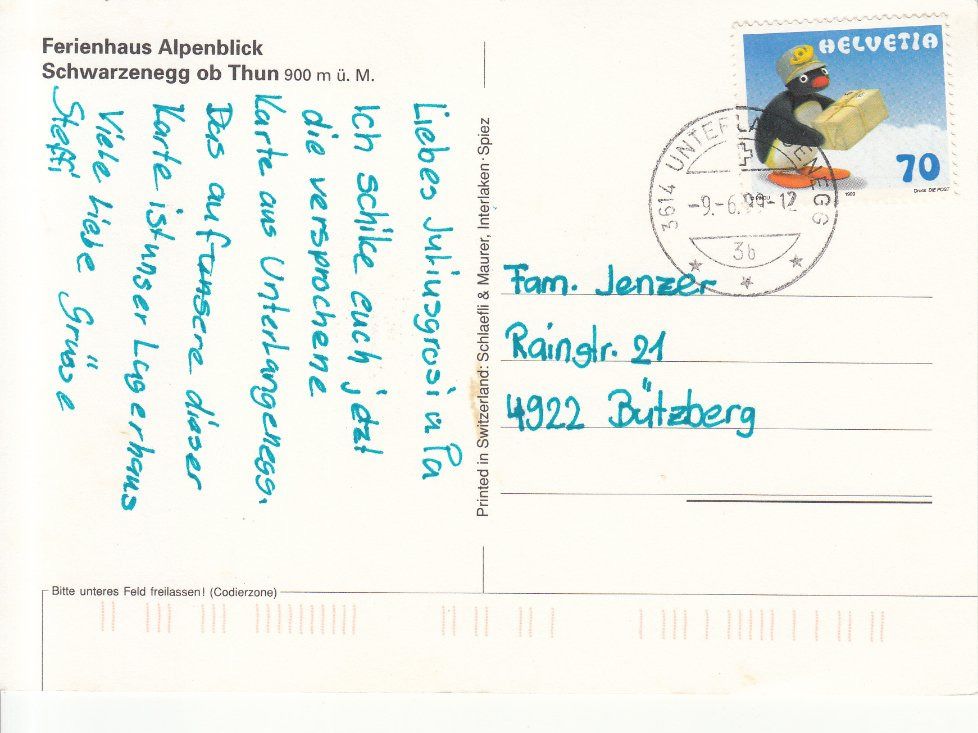 Ferienhaus Alpenblick
Schwarzenegg ob Thun 900 m ü. M.
Liebes Juliusgrosi u Pa
Ich schike euch jetzt
die versprochene
Karte aus Unterlangenegg.
Das auf unsere dieser
Karte ist unser Lagerhaus
Viele liebe Grüsse
Steffi
Printed in Switzerland: Schlaefli & Maurer, Interlaken · Spiez
HELVETIA
70
Druck: DIE POST
1999
3614 UNTERLANGENEGG
-9.-6.99-12
3b
Fam. Jenzer
Rainstr. 21
4922 Bützberg
Bitte unteres Feld freilassen! (Codierzone)